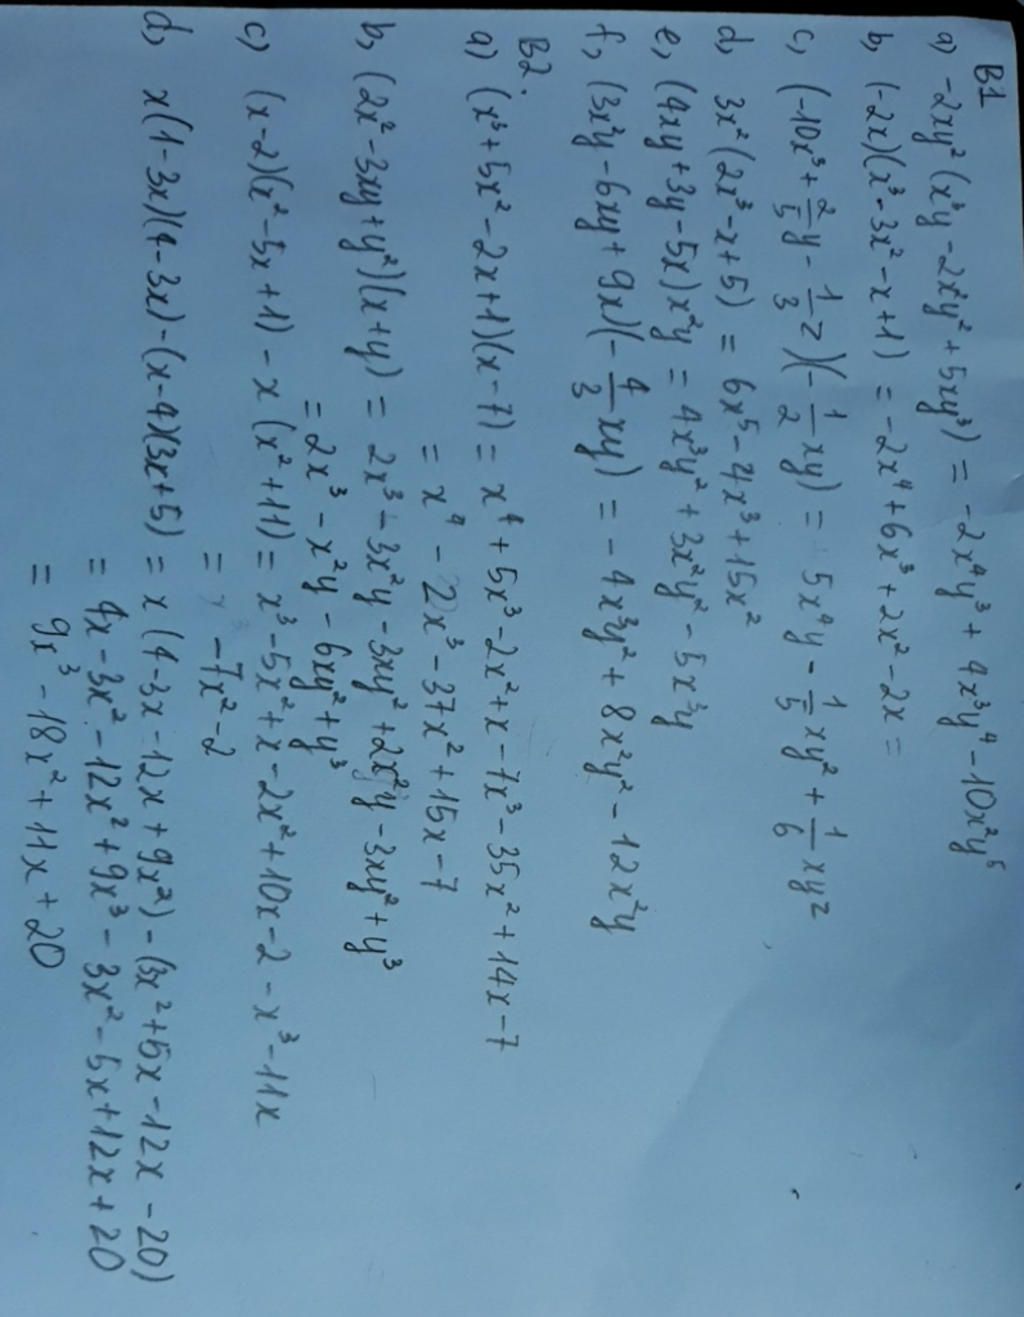 B1
a) -2xy² (x³y - 2x²y² + 5xy³) = -2x⁴y³ + 4x³y⁴ - 10x²y⁵
b, (-2x)(x³ - 3x² - x + 1) = -2x⁴ + 6x³ + 2x² - 2x =
c, (-10x³ + 2/5 y - 1/3 z)(-1/2 xy) = 5x⁴y - 1/5 xy² + 1/6 xyz
d, 3x² (2x³ - x + 5) = 6x⁵ - 4x³ + 15x²
e, (4xy + 3y - 5x) x²y = 4x³y² + 3x²y² - 5x³y
f, (3x²y - 6xy + 9x)(-4/3 xy) = -4x³y² + 8x²y² - 12x²y
B2.
a) (x³ + 5x² - 2x + 1)(x - 7) = x⁴ + 5x³ - 2x² + x - 7x³ - 35x² + 14x - 7
= x⁴ - 2x³ - 37x² + 15x - 7
b, (2x² - 3xy + y²)(x + y) = 2x³ - 3x²y - 3xy² + 2x²y - 3xy² + y³
= 2x³ - x²y - 6xy² + y³
c) (x - 2)(x² - 5x + 1) - x (x² + 11) = x³ - 5x² + x - 2x² + 10x - 2 - x³ - 11x
= -7x² - 2
d, x(1 - 3x)(4 - 3x) - (x - 4)(3x + 5) = x (4 - 3x - 12x + 9x²) - (3x² + 5x - 12x - 20)
= 4x - 3x² - 12x² + 9x³ - 3x² - 5x + 12x + 20
= 9x³ - 18x² + 11x + 20